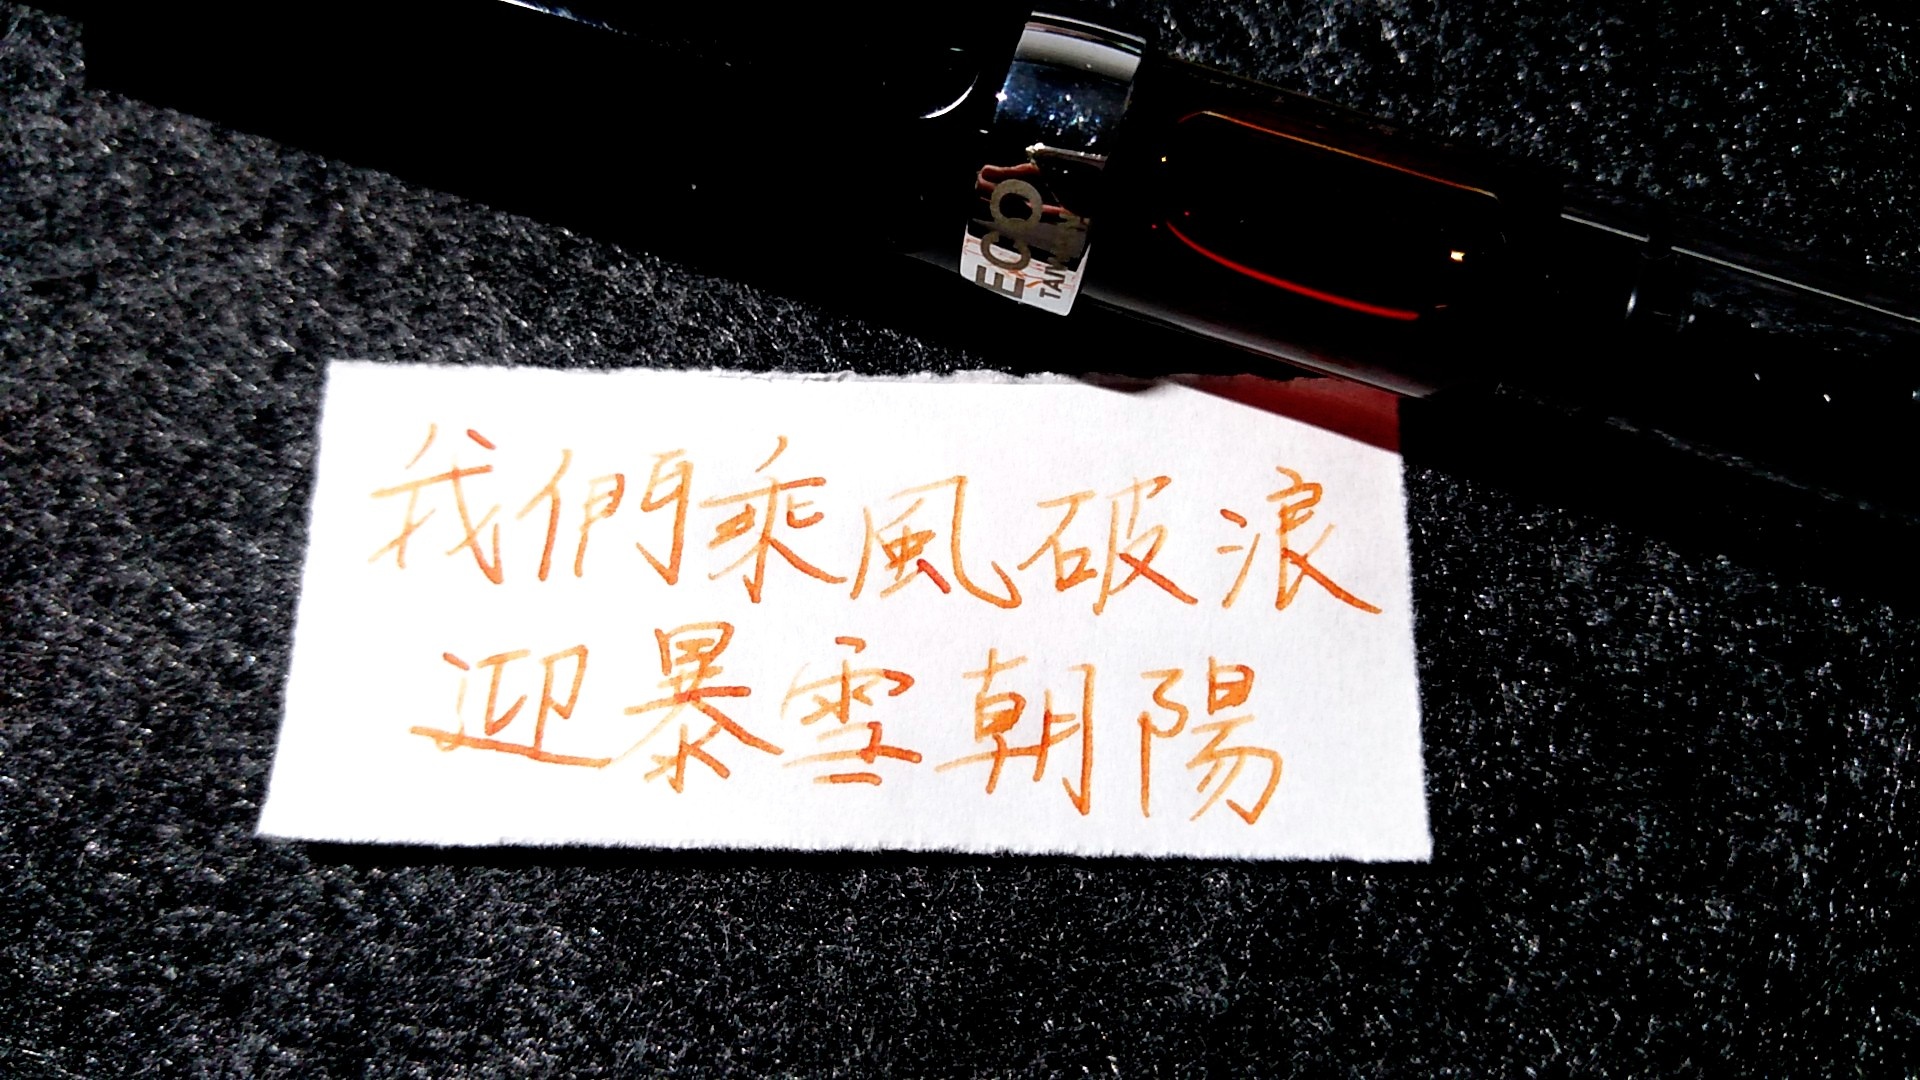 ECO
TAIWAN
我們乘風破浪
迎暴雪朝陽